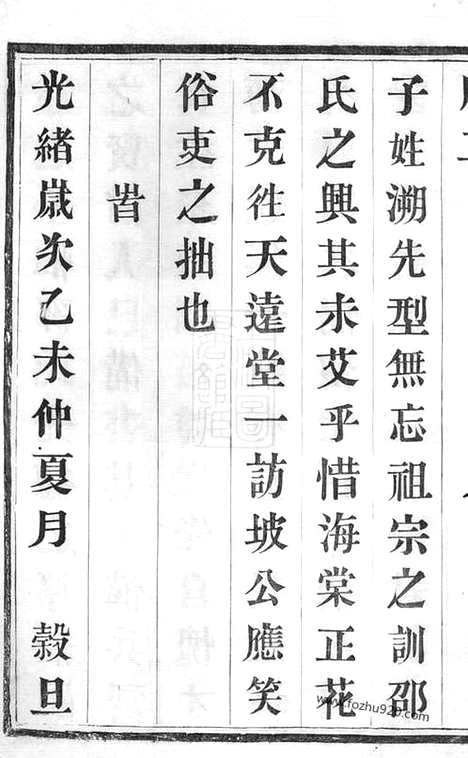 子姓溯先型無忘祖宗之訓邵
氏之興其未艾乎惜海棠正花
不克徃天遠堂一訪坡公應笑
俗吏之拙也
旹
光緒歲次乙未仲夏月　穀旦
www.fozhu920.com